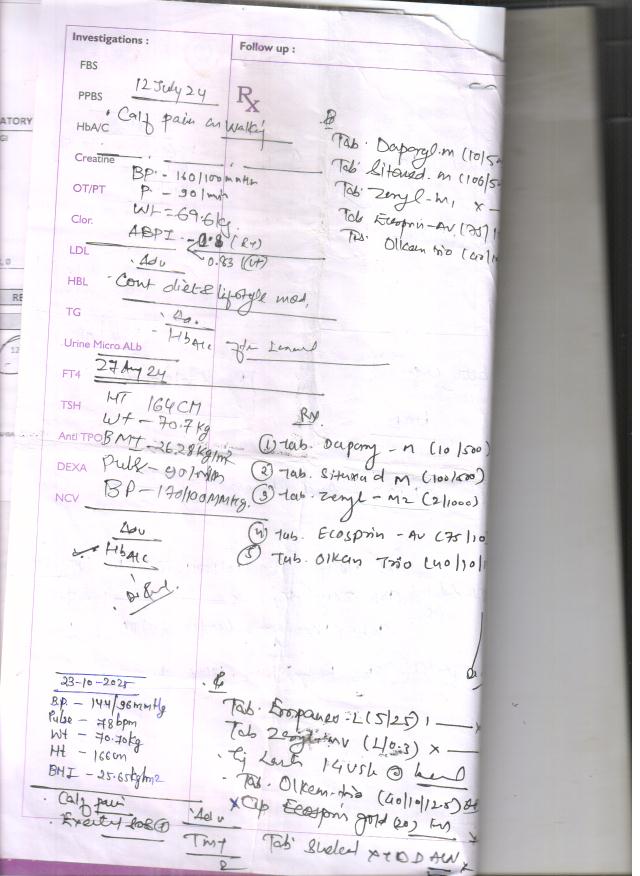 Investigations :
Follow up :
FBS
12 July 24
PPBS
Rx
Calf pain on walking
HbA/C
Tab. Daparyl-m (10/5
Creatine
Tab. Sitaxad. m (100/5
BP - 160/100 mmHg
OT/PT
P - 90/min
Tab. Zenyl-M, x
Wt = 69.6 kg
Tab Ecosprin-AV (75/1
Clor.
ABPI - (Rt)
Olkem trio (40/1
LDL
0.83 (Lt)
Adv
HBL
Cont diet & lifestyle mod.
TG
HbA1c
Urine Micro.ALb
27 Aug 24
FT4
TSH
HT 164 CM
Rx
Wt - 70.7 kg
Anti TPO
BMI - 26.28 kg/m2
① Tab. Dapary - M (10/500)
DEXA
Pulse - 90/min
② Tab. Sitaxad M (100/500)
NCV
BP - 170/100 MMHg.
③ Tab. Zenyl - M2 (2/1000)
Adv
④ Tab. Ecosprin - AV (75/10
HbA1c
⑤ Tab. Olkem Trio (40/10/1
23-10-2025
BP. - 144/96 mmHg
Pulse - 78 bpm
Wt - 70.70 kg
Ht - 166 cm
BMI - 25.65 kg/m2
Tab. -L (5/25) 1
Tab Zenyl MV (2/0.3) x
14 USK @
Tab. Olkem-trio (40/10/12.5)
Cap Ecosprin gold (20)
Calf pain
Adv
TMT
Tab